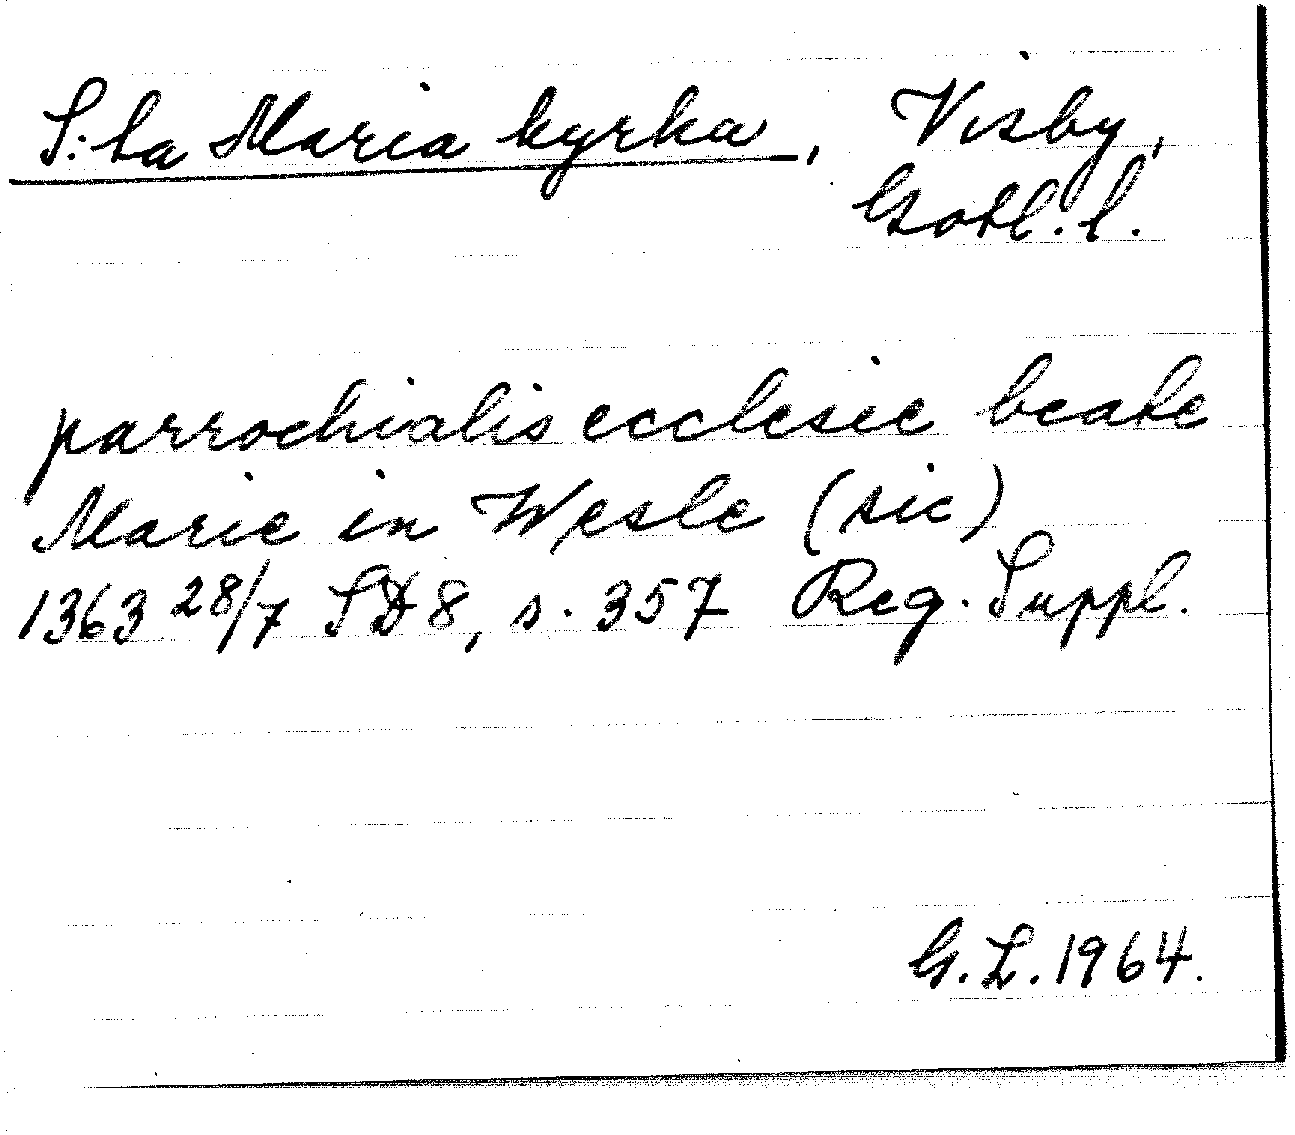 S:ta Maria kyrka, Visby,
Gotl. l.
parrochialis ecclesie beate
Marie in Wesle (sic)
1363 28/7 SD 8, s. 357 Reg. Suppl.
G. L. 1964.